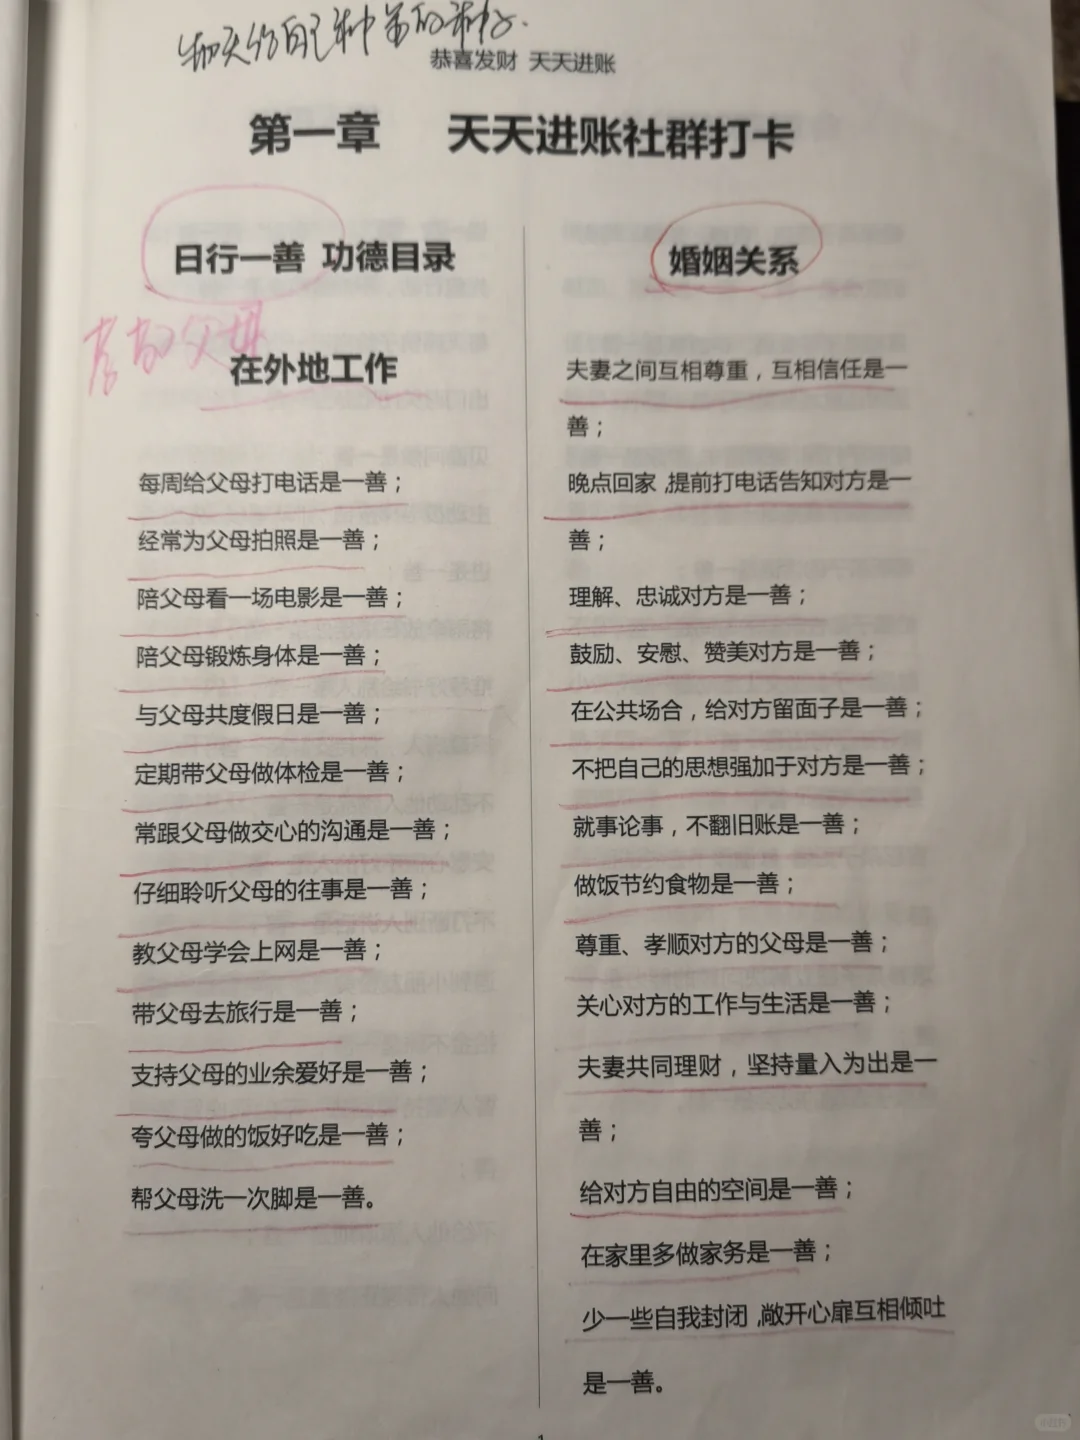 恭喜发财 天天进账
第一章 天天进账社群打卡
日行一善 功德目录
父母
在外地工作
每周给父母打电话是一善；
经常为父母拍照是一善；
陪父母看一场电影是一善；
陪父母锻炼身体是一善；
与父母共度假日是一善；
定期带父母做体检是一善；
常跟父母做交心的沟通是一善；
仔细聆听父母的往事是一善；
教父母学会上网是一善；
带父母去旅行是一善；
支持父母的业余爱好是一善；
夸父母做的饭好吃是一善；
帮父母洗一次脚是一善。
婚姻关系
夫妻之间互相尊重，互相信任是一
善；
晚点回家，提前打电话告知对方是一
善；
理解、忠诚对方是一善；
鼓励、安慰、赞美对方是一善；
在公共场合，给对方留面子是一善；
不把自己的思想强加于对方是一善；
就事论事，不翻旧账是一善；
做饭节约食物是一善；
尊重、孝顺对方的父母是一善；
关心对方的工作与生活是一善；
夫妻共同理财，坚持量入为出是一
善；
给对方自由的空间是一善；
在家里多做家务是一善；
少一些自我封闭，敞开心扉互相倾吐
是一善。